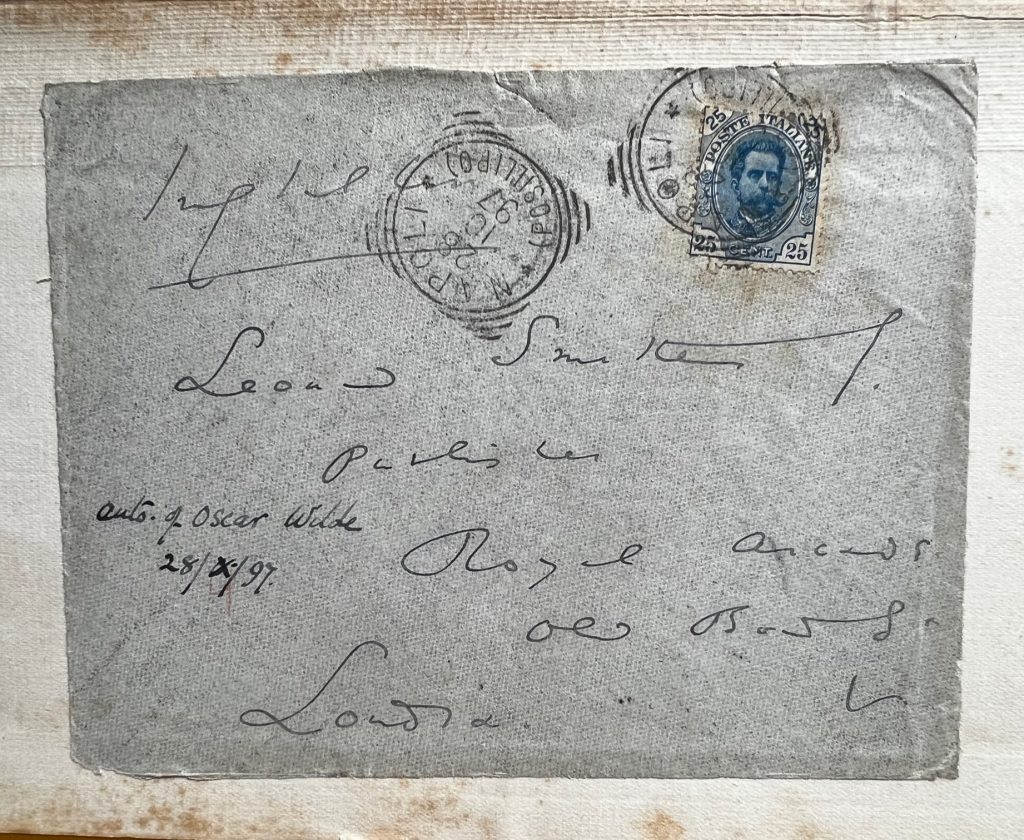 Inghilterra
NAPOLI * (POSILLIPO) *
97
NAPOLI * (POSILLIPO)
25 POSTE ITALIANE 25
25 CENT. 25
Leonard Smithers
Publisher
auto. of Oscar Wilde
28/X/97.
Royal Arcade
Old Bond St.
Londra. W